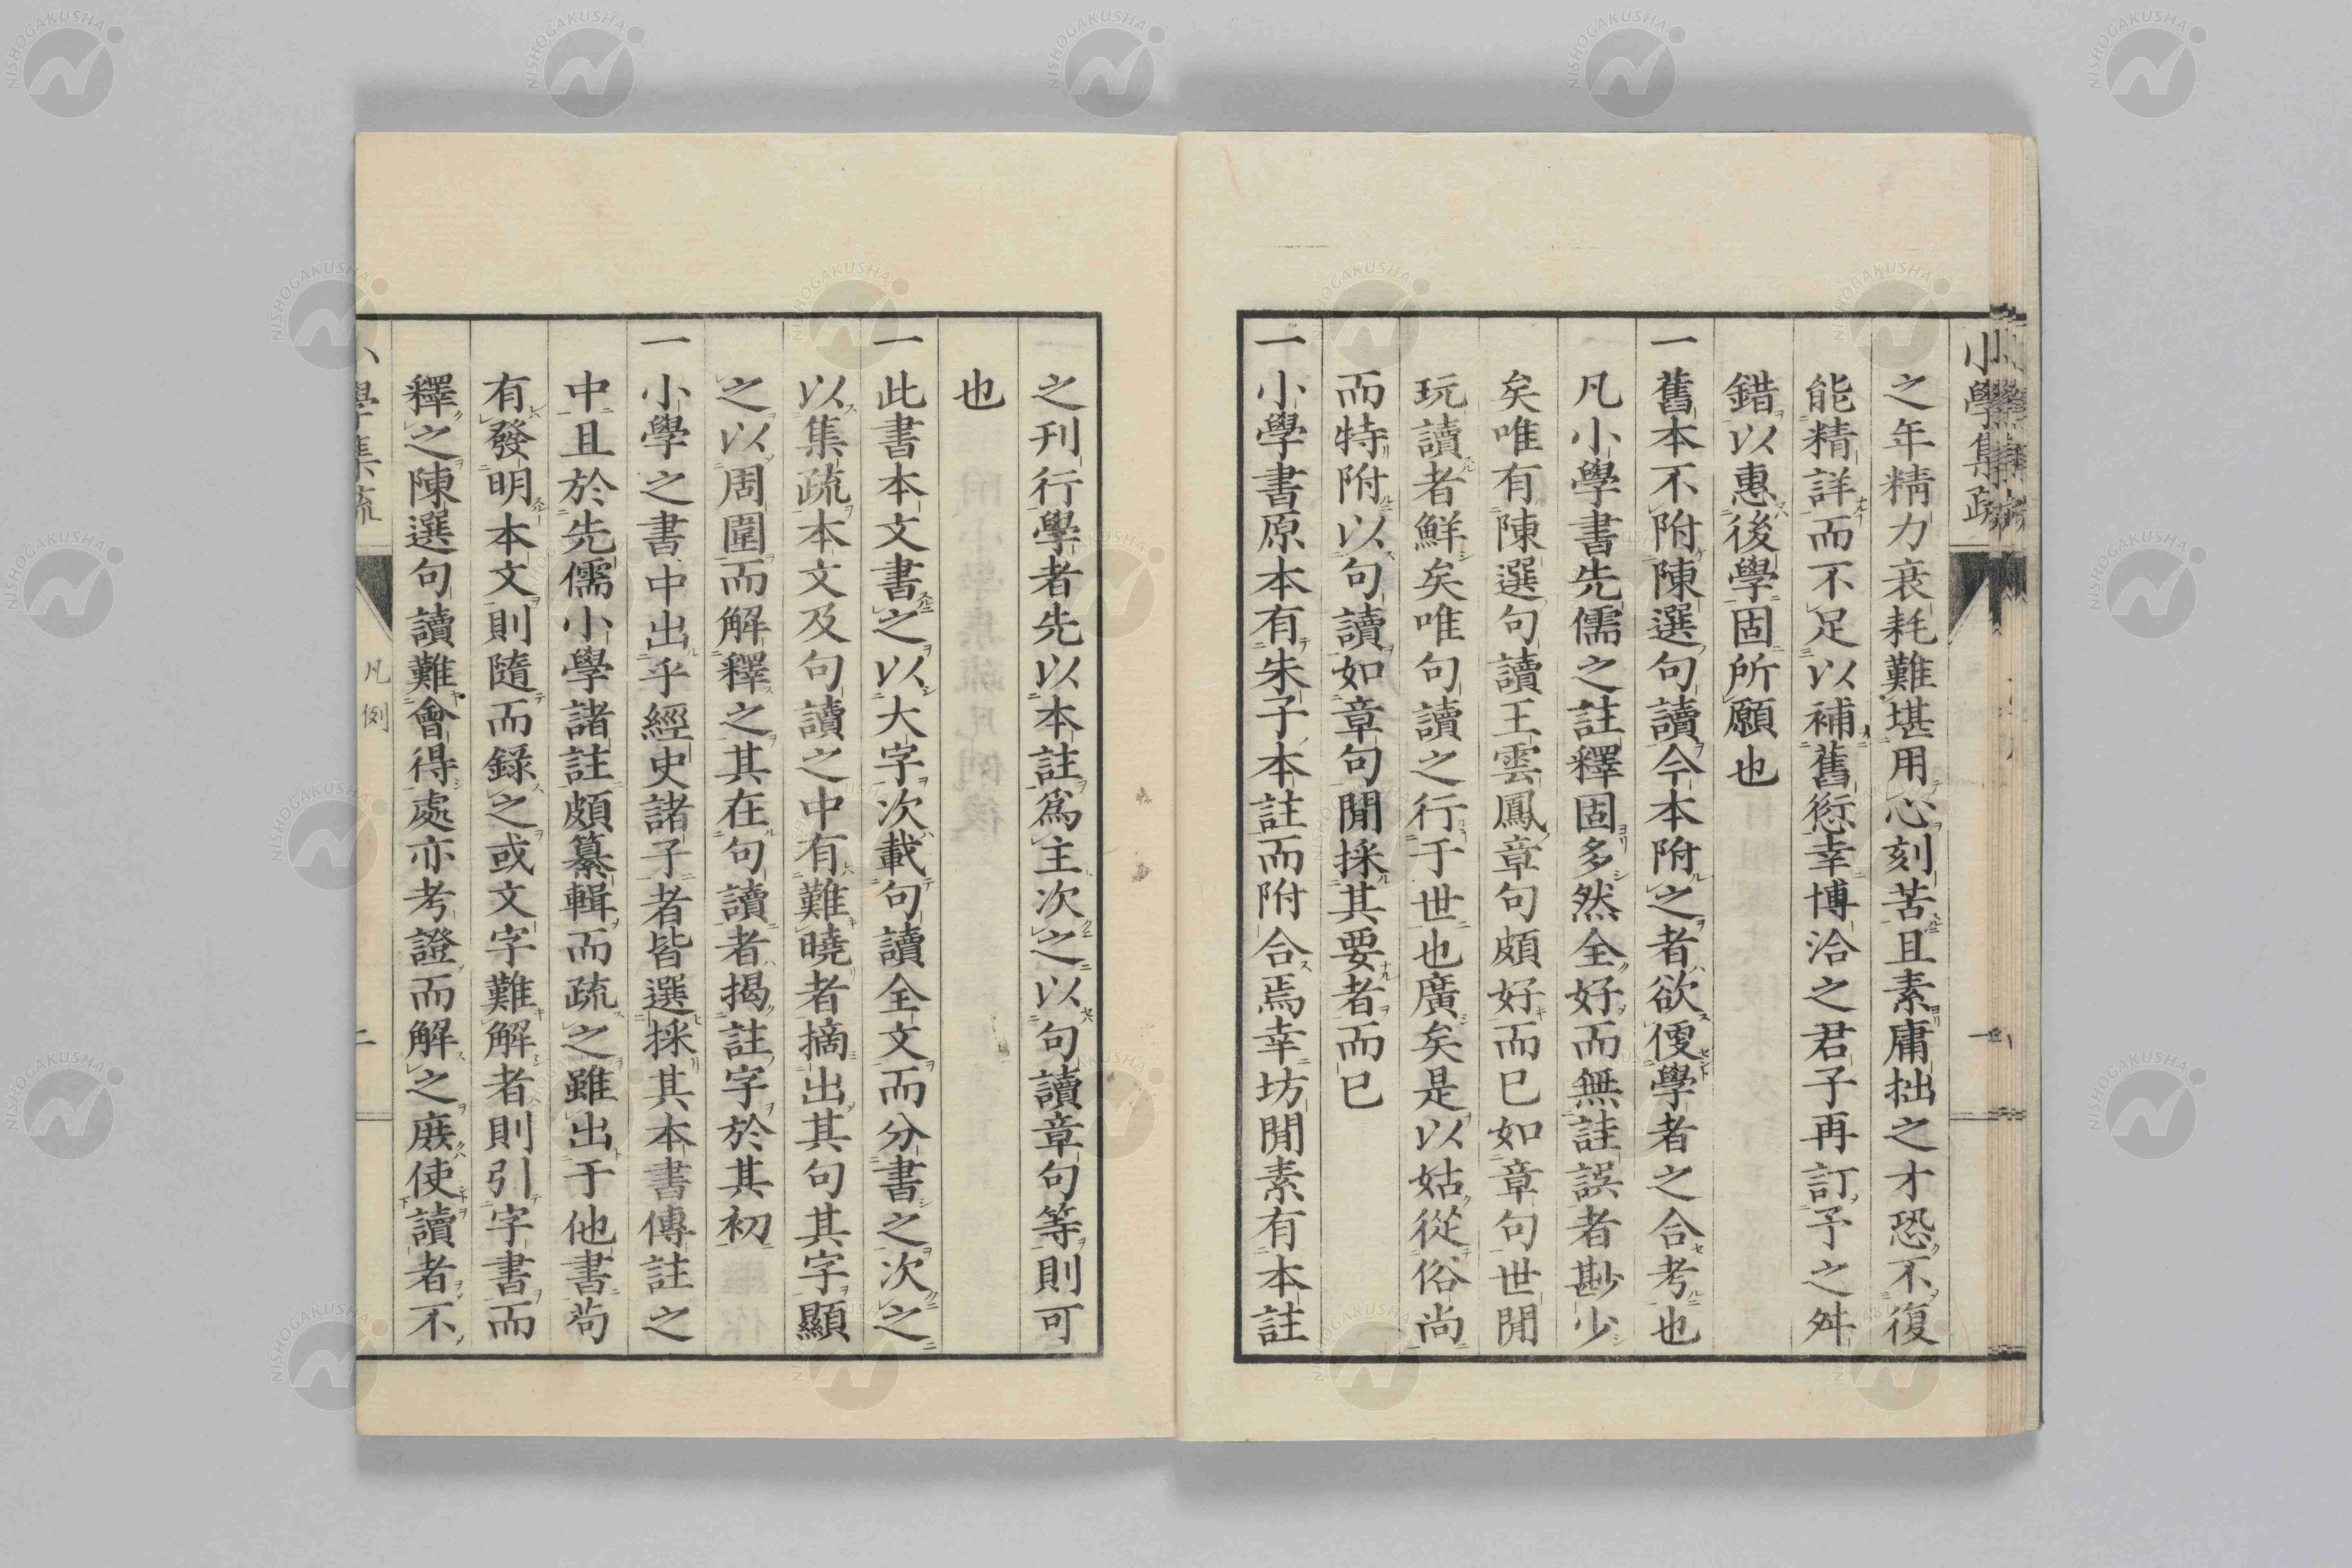 小學集疏
之年精力衰耗難堪用心刻苦且素庸拙之才恐不復
能精詳而不足以補舊愆幸博洽之君子再訂予之舛
錯以惠後學固所願也
一舊本不附陳選句讀今本附之者欲便學者之合考也
凡小學書先儒之註釋固多然全好而無註誤者尠少
矣唯有陳選句讀王雲鳳章句頗好而已如章句世間
玩讀者鮮矣唯句讀之行于世也廣矣是以姑從俗尚
而特附以句讀如章句間採其要者而已
一小學書原本有朱子本註而附合焉幸坊間素有本註
之刊行學者先以本註爲主次之以句讀章句等則可
也
一此書本文書之以大字次載句讀全文而分書之次之
以集疏本文及句讀之中有難曉者摘出其句其字顯
之以周圍而解釋之其在句讀者揭註字於其初
一小學之書中出乎經史諸子者皆選採其本書傳註之
中且於先儒小學諸註頗纂輯而疏之雖出于他書苟
有發明本文則隨而錄之或文字難解者則引字書而
釋之陳選句讀難會得處亦考證而解之庶使讀者不
小學集疏
凡例
二
NISHOGAKUSHA